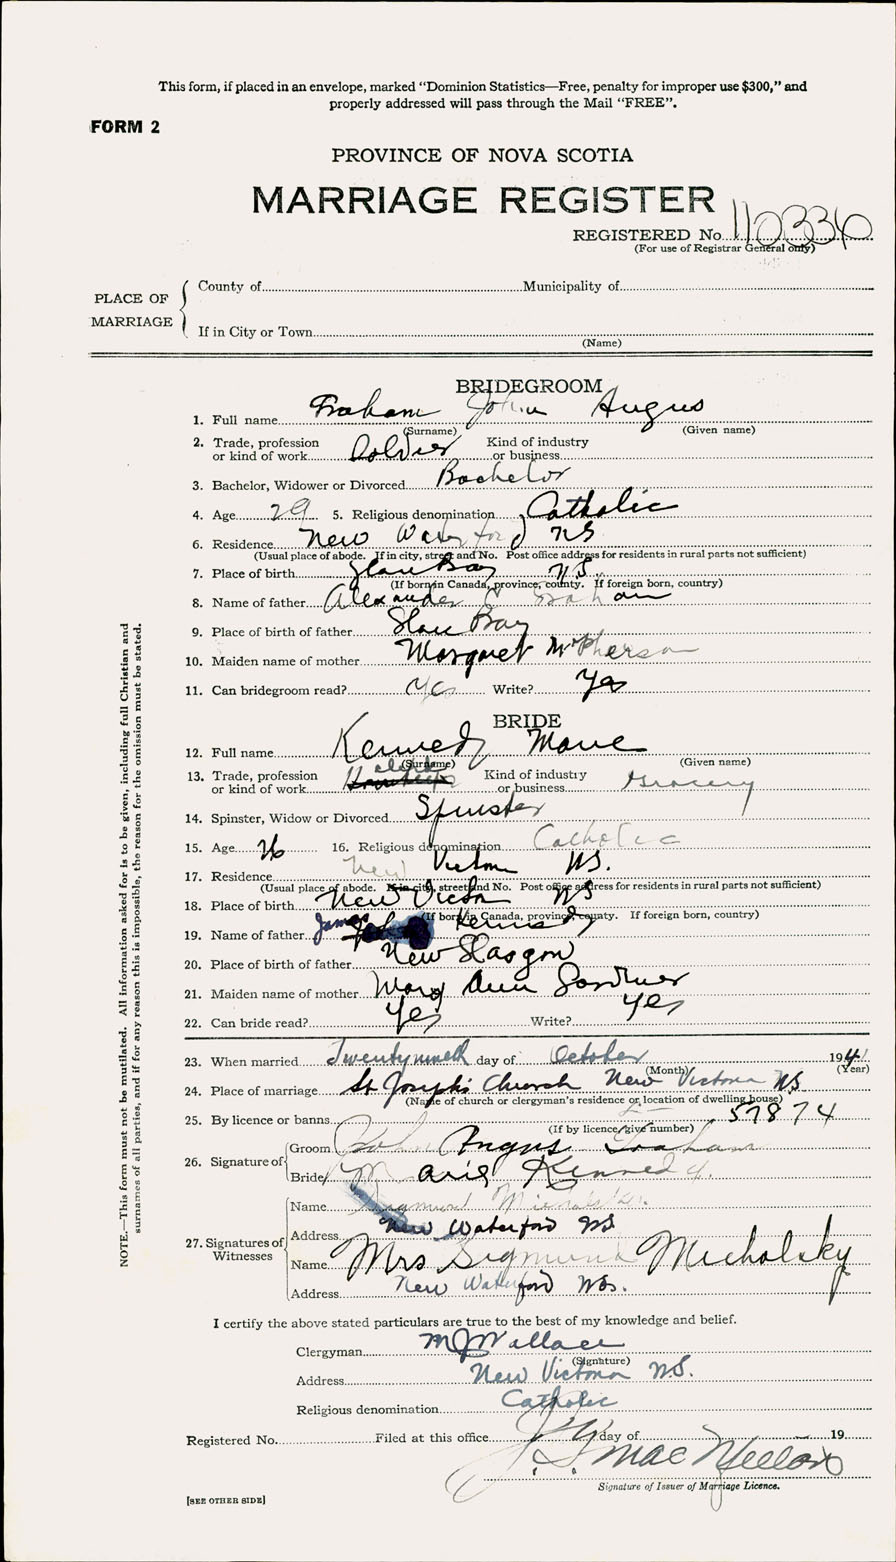 This form, if placed in an envelope, marked "Dominion Statistics—Free, penalty for improper use $300," and
properly addressed will pass through the Mail "FREE".
FORM 2
PROVINCE OF NOVA SCOTIA
MARRIAGE REGISTER
REGISTERED No. 110336
(For use of Registrar General only)
PLACE OF MARRIAGE
County of Municipality of
If in City or Town
(Name)
BRIDEGROOM
1. Full name Graham John Angus
(Surname) (Given name)
2. Trade, profession or kind of work Soldier Kind of industry or business
3. Bachelor, Widower or Divorced Bachelor
4. Age 29 5. Religious denomination Catholic
6. Residence New Waterford NS
(Usual place of abode. If in city, street and No. Post office address for residents in rural parts not sufficient)
7. Place of birth Glace Bay N.S.
(If born in Canada, province, county. If foreign born, country)
8. Name of father Alexander Graham
9. Place of birth of father Glace Bay
10. Maiden name of mother Margaret McPherson
11. Can bridegroom read? Yes Write? Yes
BRIDE
12. Full name Kennedy Marie
(Surname) (Given name)
13. Trade, profession or kind of work clerk Kind of industry or business Grocery
14. Spinster, Widow or Divorced Spinster
15. Age 26 16. Religious denomination Catholic
17. Residence New Victoria NS.
(Usual place of abode. If in city, street and No. Post office address for residents in rural parts not sufficient)
18. Place of birth New Victoria NS
(If born in Canada, province, county. If foreign born, country)
19. Name of father James Kennedy
20. Place of birth of father New Glasgow
21. Maiden name of mother Mary Ann Gardner
22. Can bride read? Yes Write? Yes
23. When married Twentyninth day of October 1941
(Month) (Year)
24. Place of marriage St Joseph's Church New Victoria NS
(Name of church or clergyman's residence or location of dwelling house)
25. By licence or banns 57874
(If by licence give number)
26. Signature of
Groom John Angus Graham
Bride Marie Kennedy.
27. Signatures of Witnesses
Name Sigmund Micholsky
Address New Waterford NS
Name Mrs Sigmund Micholsky
Address New Waterford NS.
I certify the above stated particulars are true to the best of my knowledge and belief.
Clergyman M J Wallace
(Signature)
Address New Victoria N.S.
Religious denomination Catholic
Registered No. Filed at this office day of 19
Signature of Issuer of Marriage Licence.
[SEE OTHER SIDE]
NOTE.—This form must not be mutilated. All information asked for is to be given, including full Christian and
surnames of all parties, and if for any reason this is impossible, the reason for the omission must be stated.